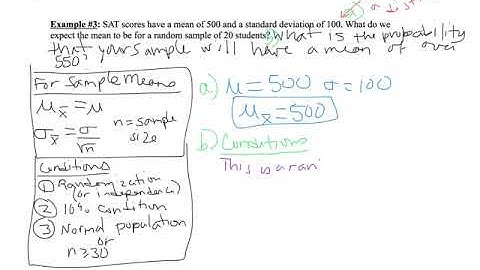 Example #3: SAT scores have a mean of 500 and a standard deviation of 100. What do we
expect the mean to be for a random sample of 20 students? What is the probability
that your sample will have a mean of over
550?
For Sample Means
μx̄ = μ
σx̄ = σ/√n
n = sample
size
Conditions
① Randomization
(or independence)
② 10% Condition
③ Normal population
or
n ≥ 30
a) μ = 500 σ = 100
μx̄ = 500
b) Conditions
This is a ran